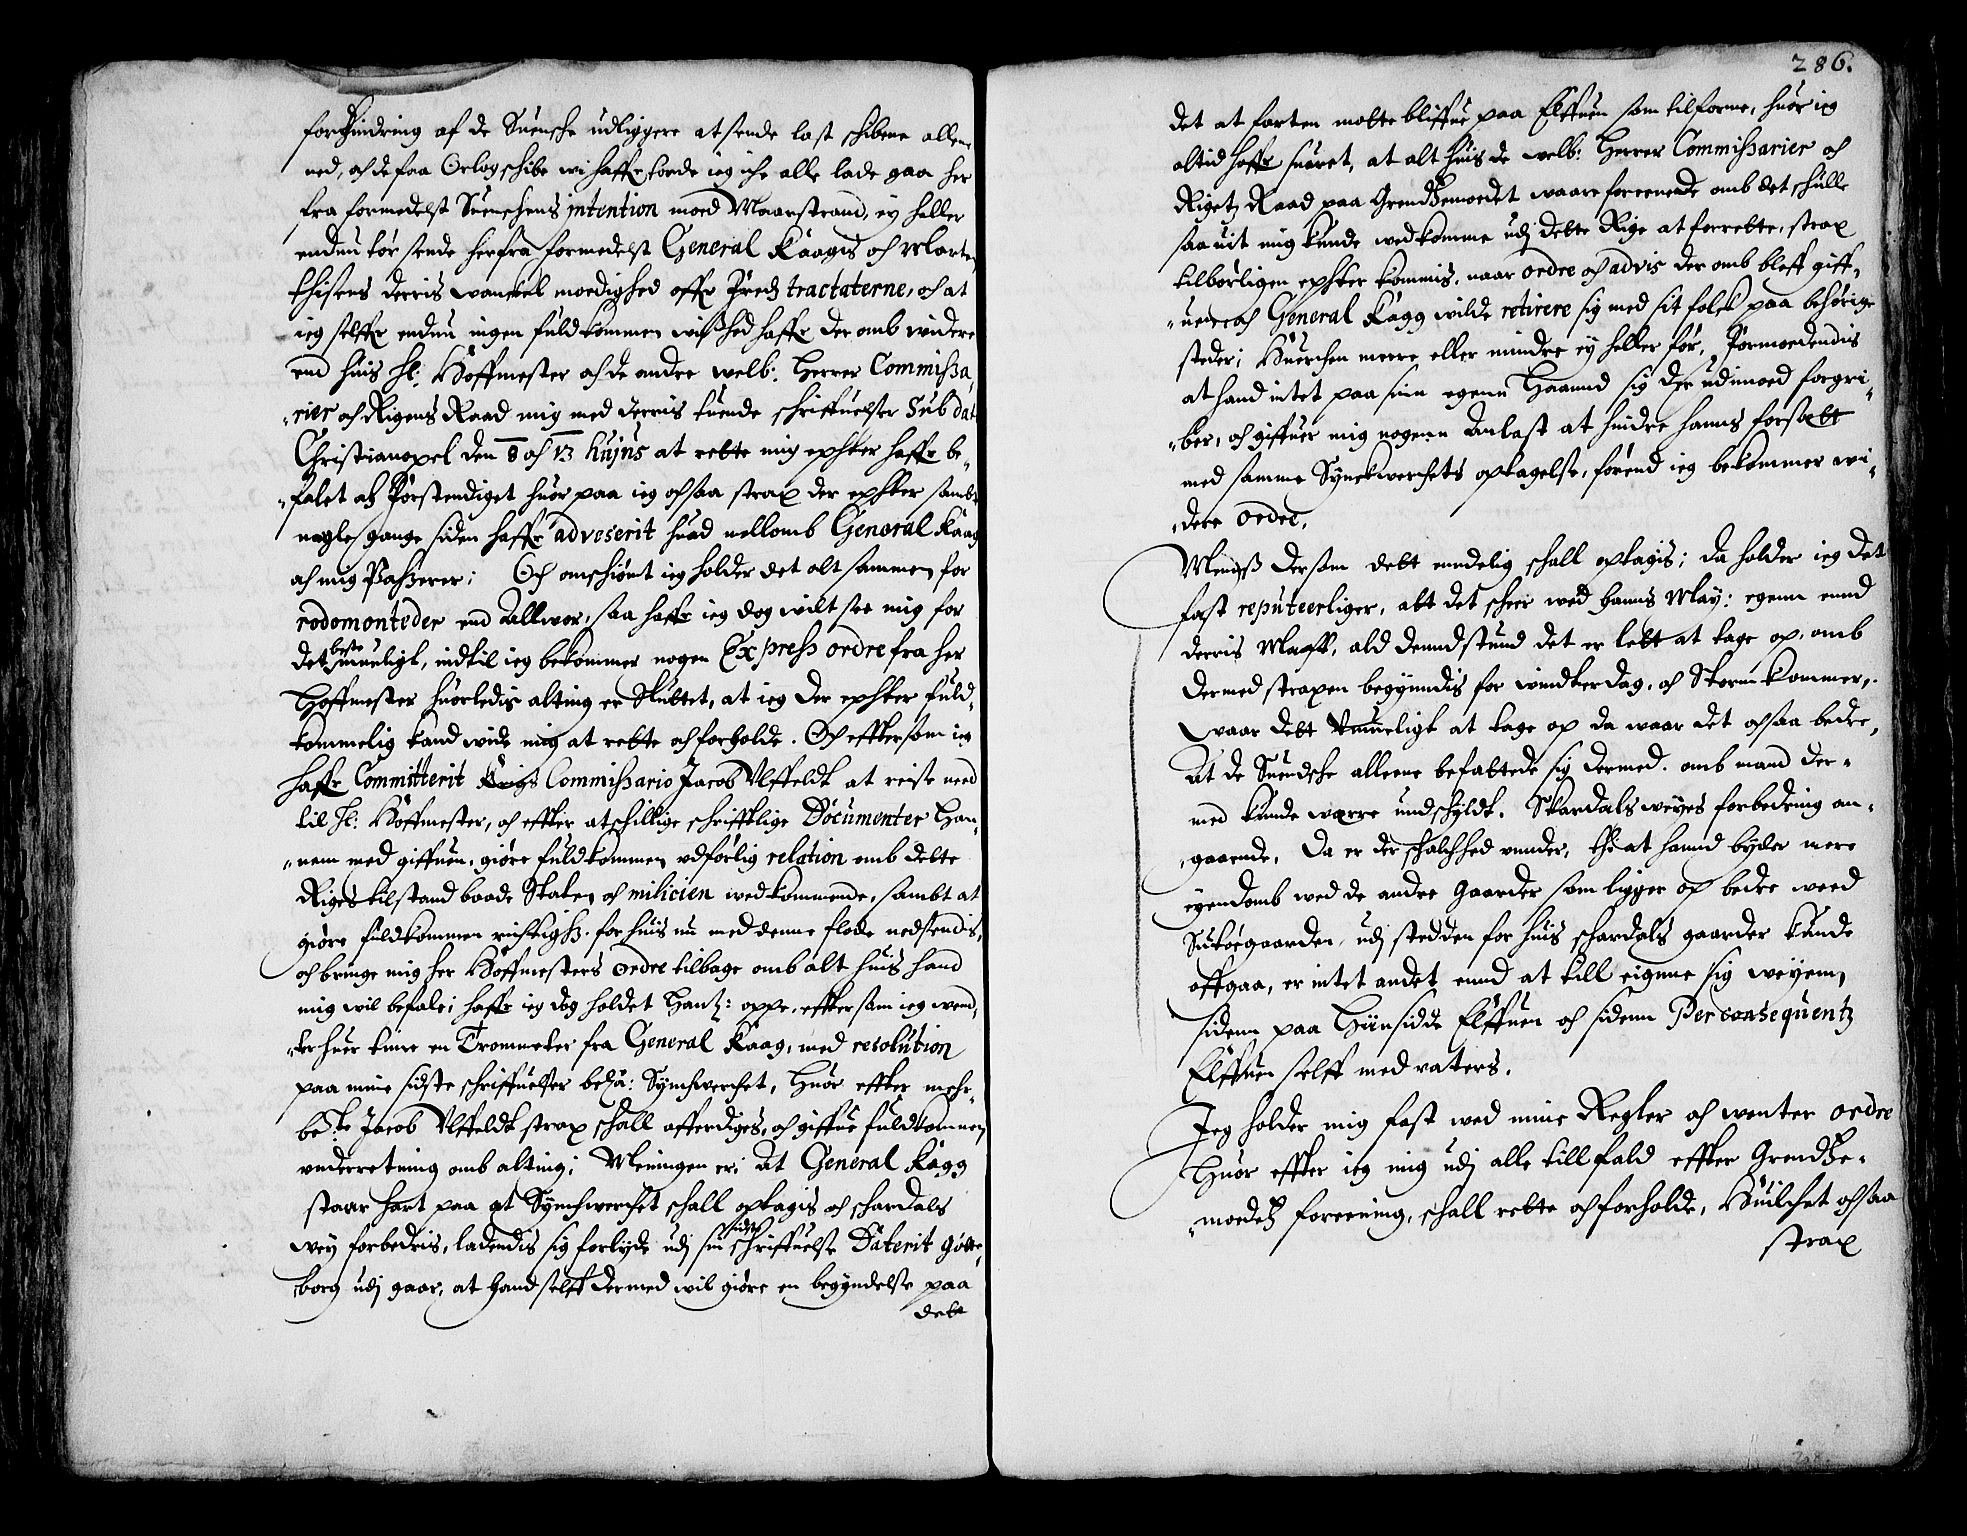 forhindring af de Suensche udliggere at sende last schibene allene
ned, och de faa Orlog schibe wi haffr torde ieg iche alle lade gaa her
fra formedelst Suenschens intention moed Maarstrand, ey heller
endnu tør sende herfra formedelst General Kaagis och Morten
thisens derris wanckel moedighed offr Freds tractaterne, och at
ieg selffr endnu ingen fuldkommen wished haffr der omb widere
end huis Hl: Hoffmester och de andre welb: Herrer Commissa„
„rier och Rigens Raad mig med derris tuende schriffuelser Sub dat
Christianopel den 8 och 13 hujus at rette mig epther haffr be„
„falet och forstendiget huor paa ieg ochsaa strax der epther sambt
nogle gange siden haffr adveserit huad mellomb General Kaag
och mig Passerer; Och omschiønt ieg holder det alt sammen for
rodomonteder end Allwor, saa haffr ieg dog wilt see mig for
det beste mueligt, indtil ieg bekommer nogen Express ordre fra her
Hoffmester huorledis alting er Sluttet, at ieg der epther fuld„
kommelig kand wide mig at rette och forholde. Och effter som ieg
haffr Committerit Commissario Jacob Ulffeldt at reise need
til Hl: Hoffmester, och effter atschillige schrifftlige Documenter Han„
„nem med giffuen, giøre fuldkommen udførlig relation omb dette
Riges tilstand baade Staten och milicien wedkommende, sambt at
giøre fuldkommen richtighd for huis nu med denne flode nedsendis,
och bringe mig her Hoffmesters ordre tilbage omb alt huis hand
mig wil befale; haffr ieg dog holdet Hans: oppe, effter som ieg wend„
„ter huer time en Trommeter fra General Kaag, med resolution
paa mine sidste schriffuelser bela: Synchwerchet, Huor effter mehr„
be:te Jacob Ulffeldt strax schall afferdiges, och giffue fuldkommen
underretning omb alting; Meningen er; At General Kagg
staar hart paa at Synchwerchet schall optagis och schardals
wey forbedris, ladendis sig forlyde udj sin sidste schriffuelse Daterit Gøtte„
borg udj gaar, at hand selff dermed wil giøre en begyndelse paa
dete
286.
det at farten motte bliffue paa Elffuen som tilforne, huor ieg
altid haffr suaret, at alt huis de welb: Herrer Commissarier och
Rigets Raad paa Grendsemoedet waare foreenede omb det schulle
saauit mig kunde wedkomme udj dette Rige at forrette, strax
tilbørligen epther kommis, naar ordre och advis der omb bleff giff„
„uen och General Kagg wilde retirere sig med sit folck paa behørige
steder; Huerchen meere eller mindre ey heller før, Formoedendis
at hand intet paa sinn egenn Haannd sig der udimoed forgri„
„ber, och giffuer mig nogenn Anlast at hindre hanns forsætt
med samme Synckwerchets optagelse, førend ieg bekommer wi„
„dere ordre.
Menss dersom dett endelig schall optagis; da holder ieg det
fast reputeerliger, att det scheer wed hanns May: egenn ennd
derris Magtt, ald dennd stund det er lett at tage op, omb
dermed straxen begyndis for windterdag, och Storm kommer,
waar dett umueligt at tage op da waar det ochsaa bedre,
At de Suendsche alleene befattede sig dermed. omb mand der„
med kunde worre undschyldt. Skardals weyes forbedring an„
„gaaende, Da er der schalchhed under, thi at hannd byder mere
eyendomb wed de andre Gaarder som ligger op bedre weed
Sukoegaarden, udj stedden for huis schardals gaarder kunde
affgaa, er intet andet ennd at till eigenne sig weyenn,
sidenn paa Hiinsidde Elffuen och sidenn Per consequents
Elffuen selff med vaters.
Jeg holder mig fast wed mine Regler och wenter ordre
Huor effter ieg mig udj alle tillfald effter Grendtze„
„moedets foreening, schall rette och forholde, Huilchet ochsaa
strax